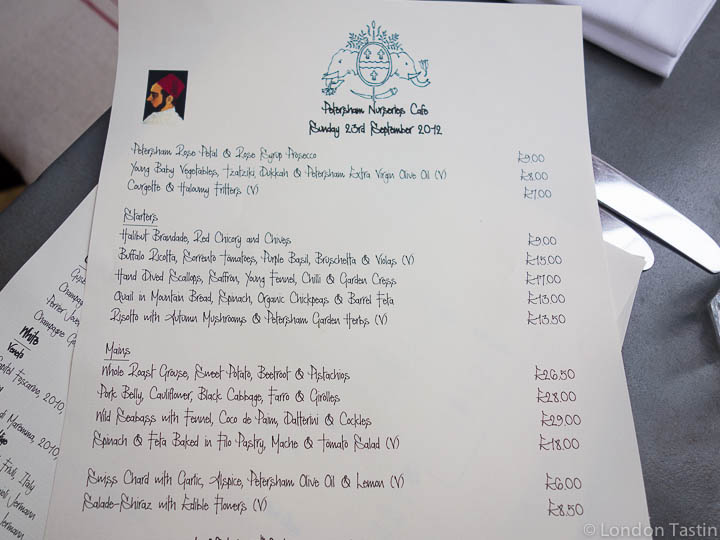 Petersham Nurseries Cafe
Sunday 23rd September 2012
Petersham Rose Petal & Rose Syrup Prosecco £9.00
Young Baby Vegetables, Tzatziki, Dukkah & Petersham Extra Virgin Olive Oil (V) £8.00
Courgette & Haloumy Fritters (V) £7.00
Starters
Halibut Brandade, Red Chicory and Chives £9.00
Buffalo Ricotta, Sorrento Tomatoes, Purple Basil, Bruschetta & Violas (V) £15.00
Hand Dived Scallops, Saffron, Young Fennel, Chilli & Garden Cress £17.00
Quail in Mountain Bread, Spinach, Organic Chickpeas & Barrel Feta £13.00
Risotto with Autumn Mushrooms & Petersham Garden Herbs (V) £13.50
Mains
Whole Roast Grouse, Sweet Potato, Beetroot & Pistachios £26.50
Pork Belly, Cauliflower, Black Cabbage, Farro & Girolles £28.00
Wild Seabass with Fennel, Coco de Paim, Datterini & Cockles £29.00
Spinach & Feta Baked in Filo Pastry, Mache & Tomato Salad (V) £18.00
Swiss Chard with Garlic, Allspice, Petersham Olive Oil & Lemon (V) £6.00
Salade-Shiraz with Edible Flowers (V) £8.50
Champagne
Perrier
Champagne
White
Veneto
Foscarino, 2010,
Maremma, 2010,
Friuli, Italy
Jermann
Jermann
© London Tastin